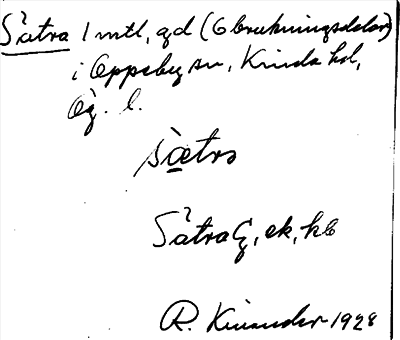 Sätra 1 mtl, gd (6 brukningsdelar)
i Oppeby sn, Kinda hd,
Ög. l.
sætra
Sätra G, ek, hb
R. Kinander 1928